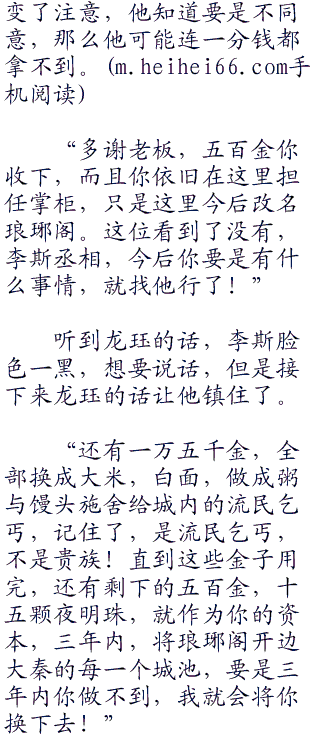 变了注意，他知道要是不同
意，那么他可能连一分钱都
拿不到。(m.heihei66.com手
机阅读)
“多谢老板，五百金你
收下，而且你依旧在这里担
任掌柜，只是这里今后改名
琅琊阁。这位看到了没有，
李斯丞相，今后你要是有什
么事情，就找他行了！”
听到龙珏的话，李斯脸
色一黑，想要说话，但是接
下来龙珏的话让他镇住了。
“还有一万五千金，全
部换成大米，白面，做成粥
与馒头施舍给城内的流民乞
丐，记住了，是流民乞丐，
不是贵族！直到这些金子用
完，还有剩下的五百金，十
五颗夜明珠，就作为你的资
本，三年内，将琅琊阁开边
大秦的每一个城池，要是三
年内你做不到，我就会将你
换下去！”